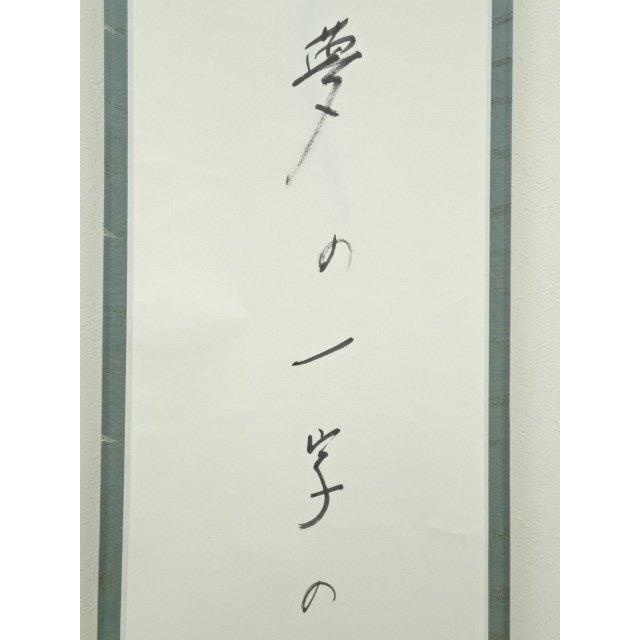 夢の一字の